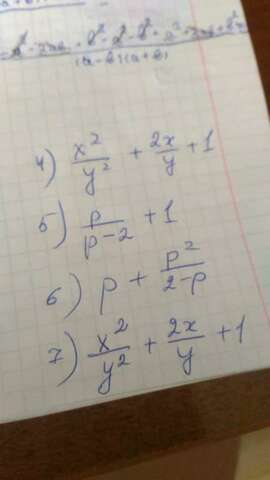 (a-b)(a+b)
4) x²/y² + 2x/y + 1
5) p/p-2 + 1
6) p + p²/2-p
7) x²/y² + 2x/y + 1